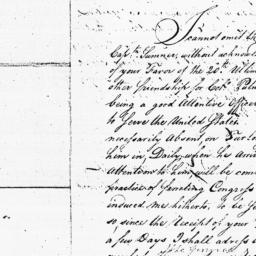 I cannot omit
Capt. Sumner, without acknow
of your Favor of the 20th Ultim
other friendship for Col. Palm
being a good Attentive Officer
to Serve the United States
necessarily Absent on
him in Daily, when he
Attention to him will be
practice of Congress
induced me hitherto, to be
so since the Receipt of your
a few Days I shall adress